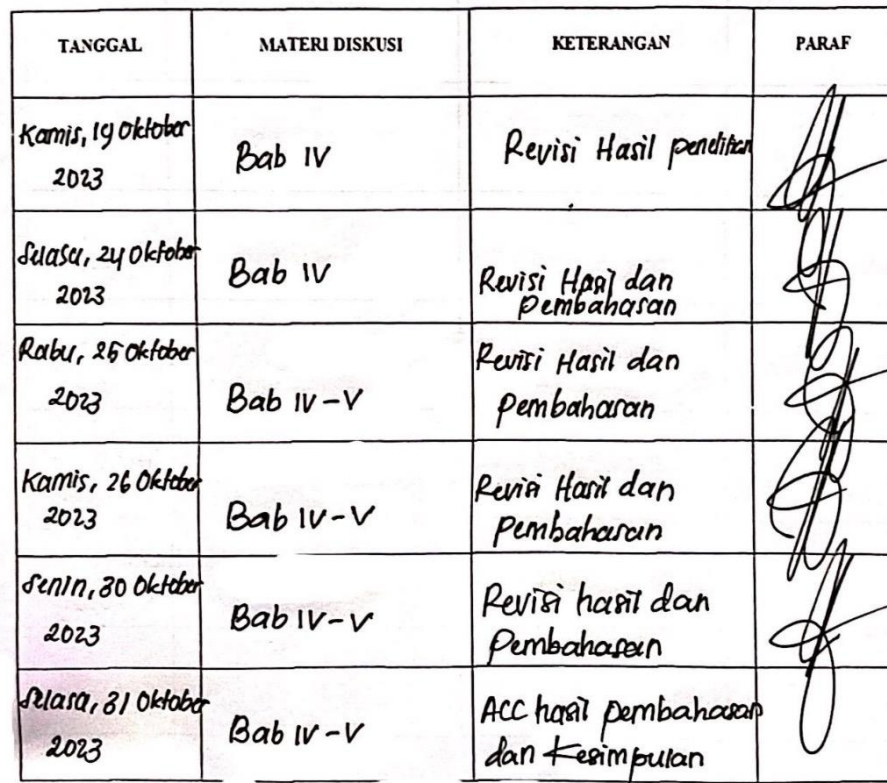 TANGGAL MATERI DISKUSI KETERANGAN PARAF
Kamis, 19 Oktober
2023
Bab IV
Revisi Hasil penelitian
Selasa, 24 Oktober
2023
Bab IV
Revisi Hasil dan
Pembahasan
Rabu, 25 Oktober
2023
Bab IV-V
Revisi Hasil dan
Pembahasan
Kamis, 26 Oktober
2023
Bab IV-V
Revisi Hasil dan
Pembahasan
Senin, 30 Oktober
2023
Bab IV-V
Revisi hasil dan
Pembahasan
Selasa, 31 Oktober
2023
Bab IV-V
ACC hasil pembahasan
dan Kesimpulan